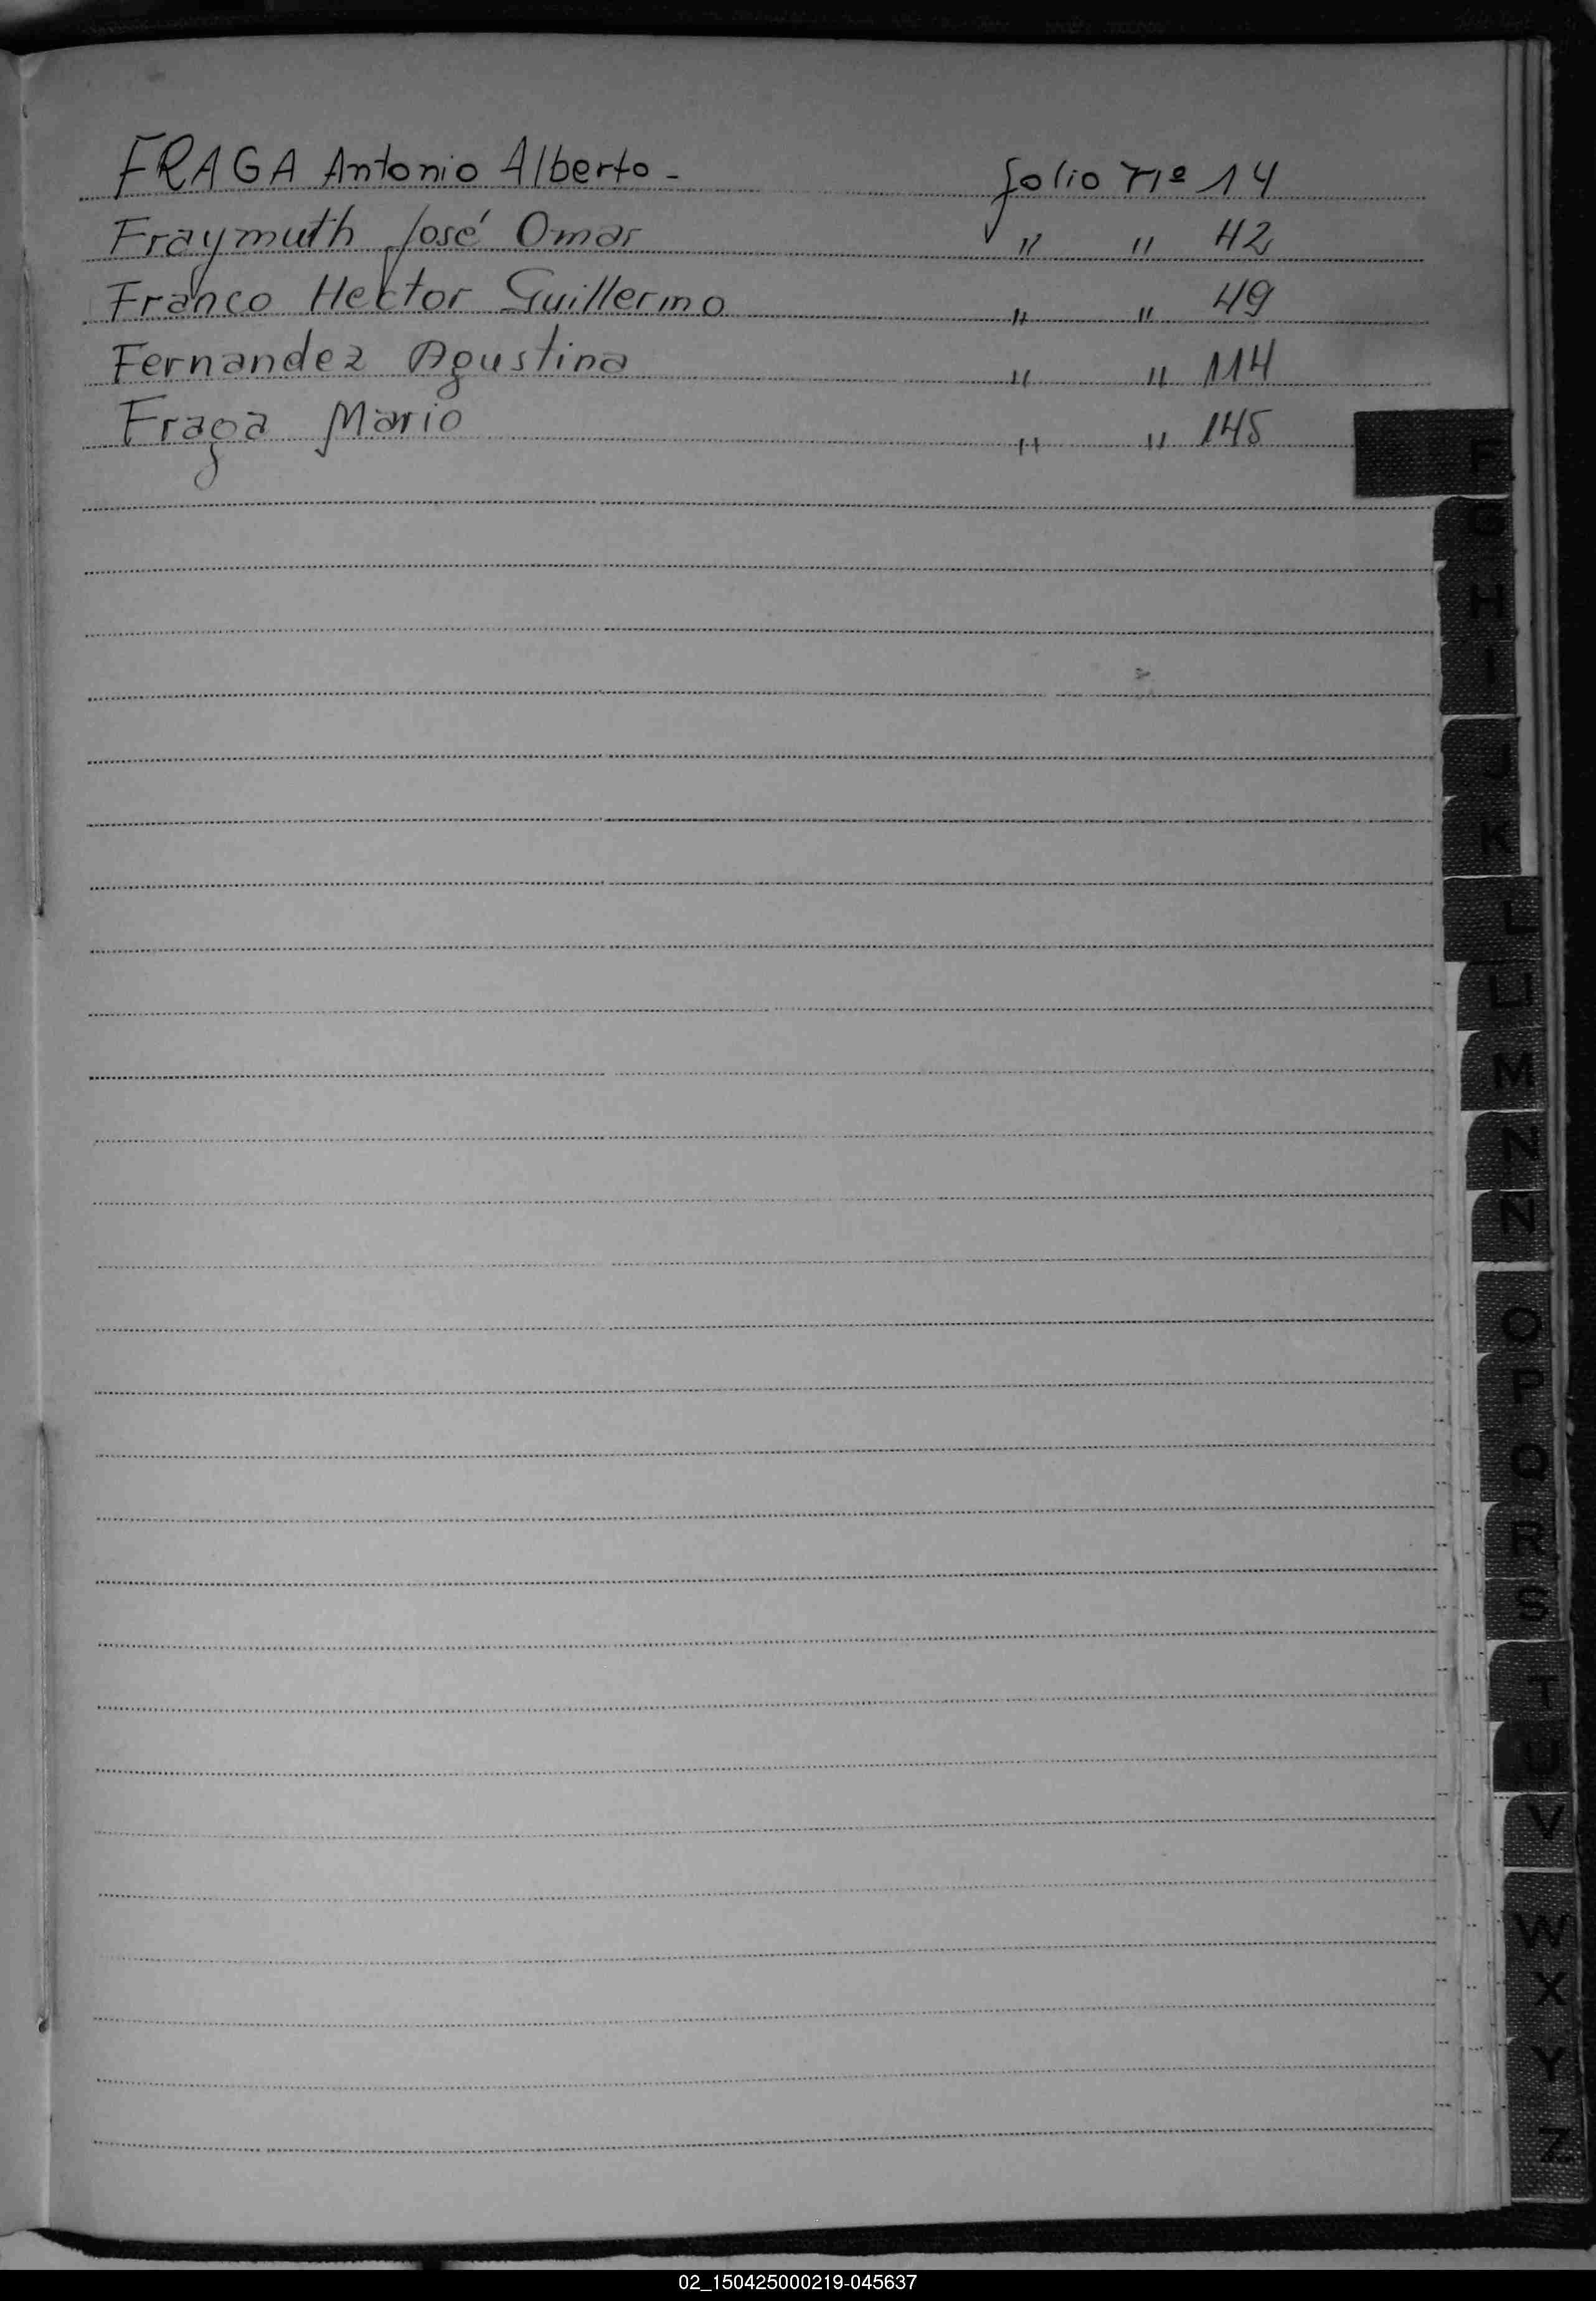 FRAGA Antonio Alberto - folio nº 14
Fraymuth José Omar " " 42
Franco Hector Guillermo " " 49
Fernandez Agustina " " 114
Fraga Mario " " 145
F
G
H
I
J
K
L
Ll
M
N
Ñ
O
P
Q
R
S
T
U
V
W
X
Y
Z
02_150425000219-045637